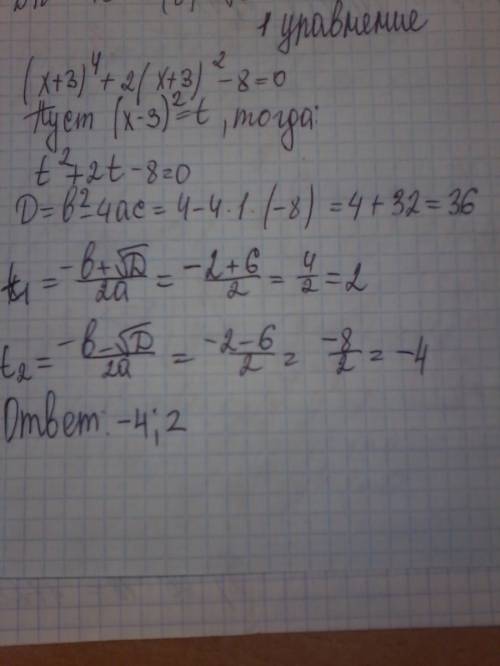 1 уравнение
(x+3)^4 + 2(x+3)^2 - 8 = 0
Пуст (x-3)^2 = t, тогда:
t^2 + 2t - 8 = 0
D = b^2 - 4ac = 4 - 4 · 1 · (-8) = 4 + 32 = 36
t_1 = (-b + √D)/(2a) = (-2 + 6)/2 = 4/2 = 2
t_2 = (-b - √D)/(2a) = (-2 - 6)/2 = (-8)/2 = -4
Ответ: -4; 2